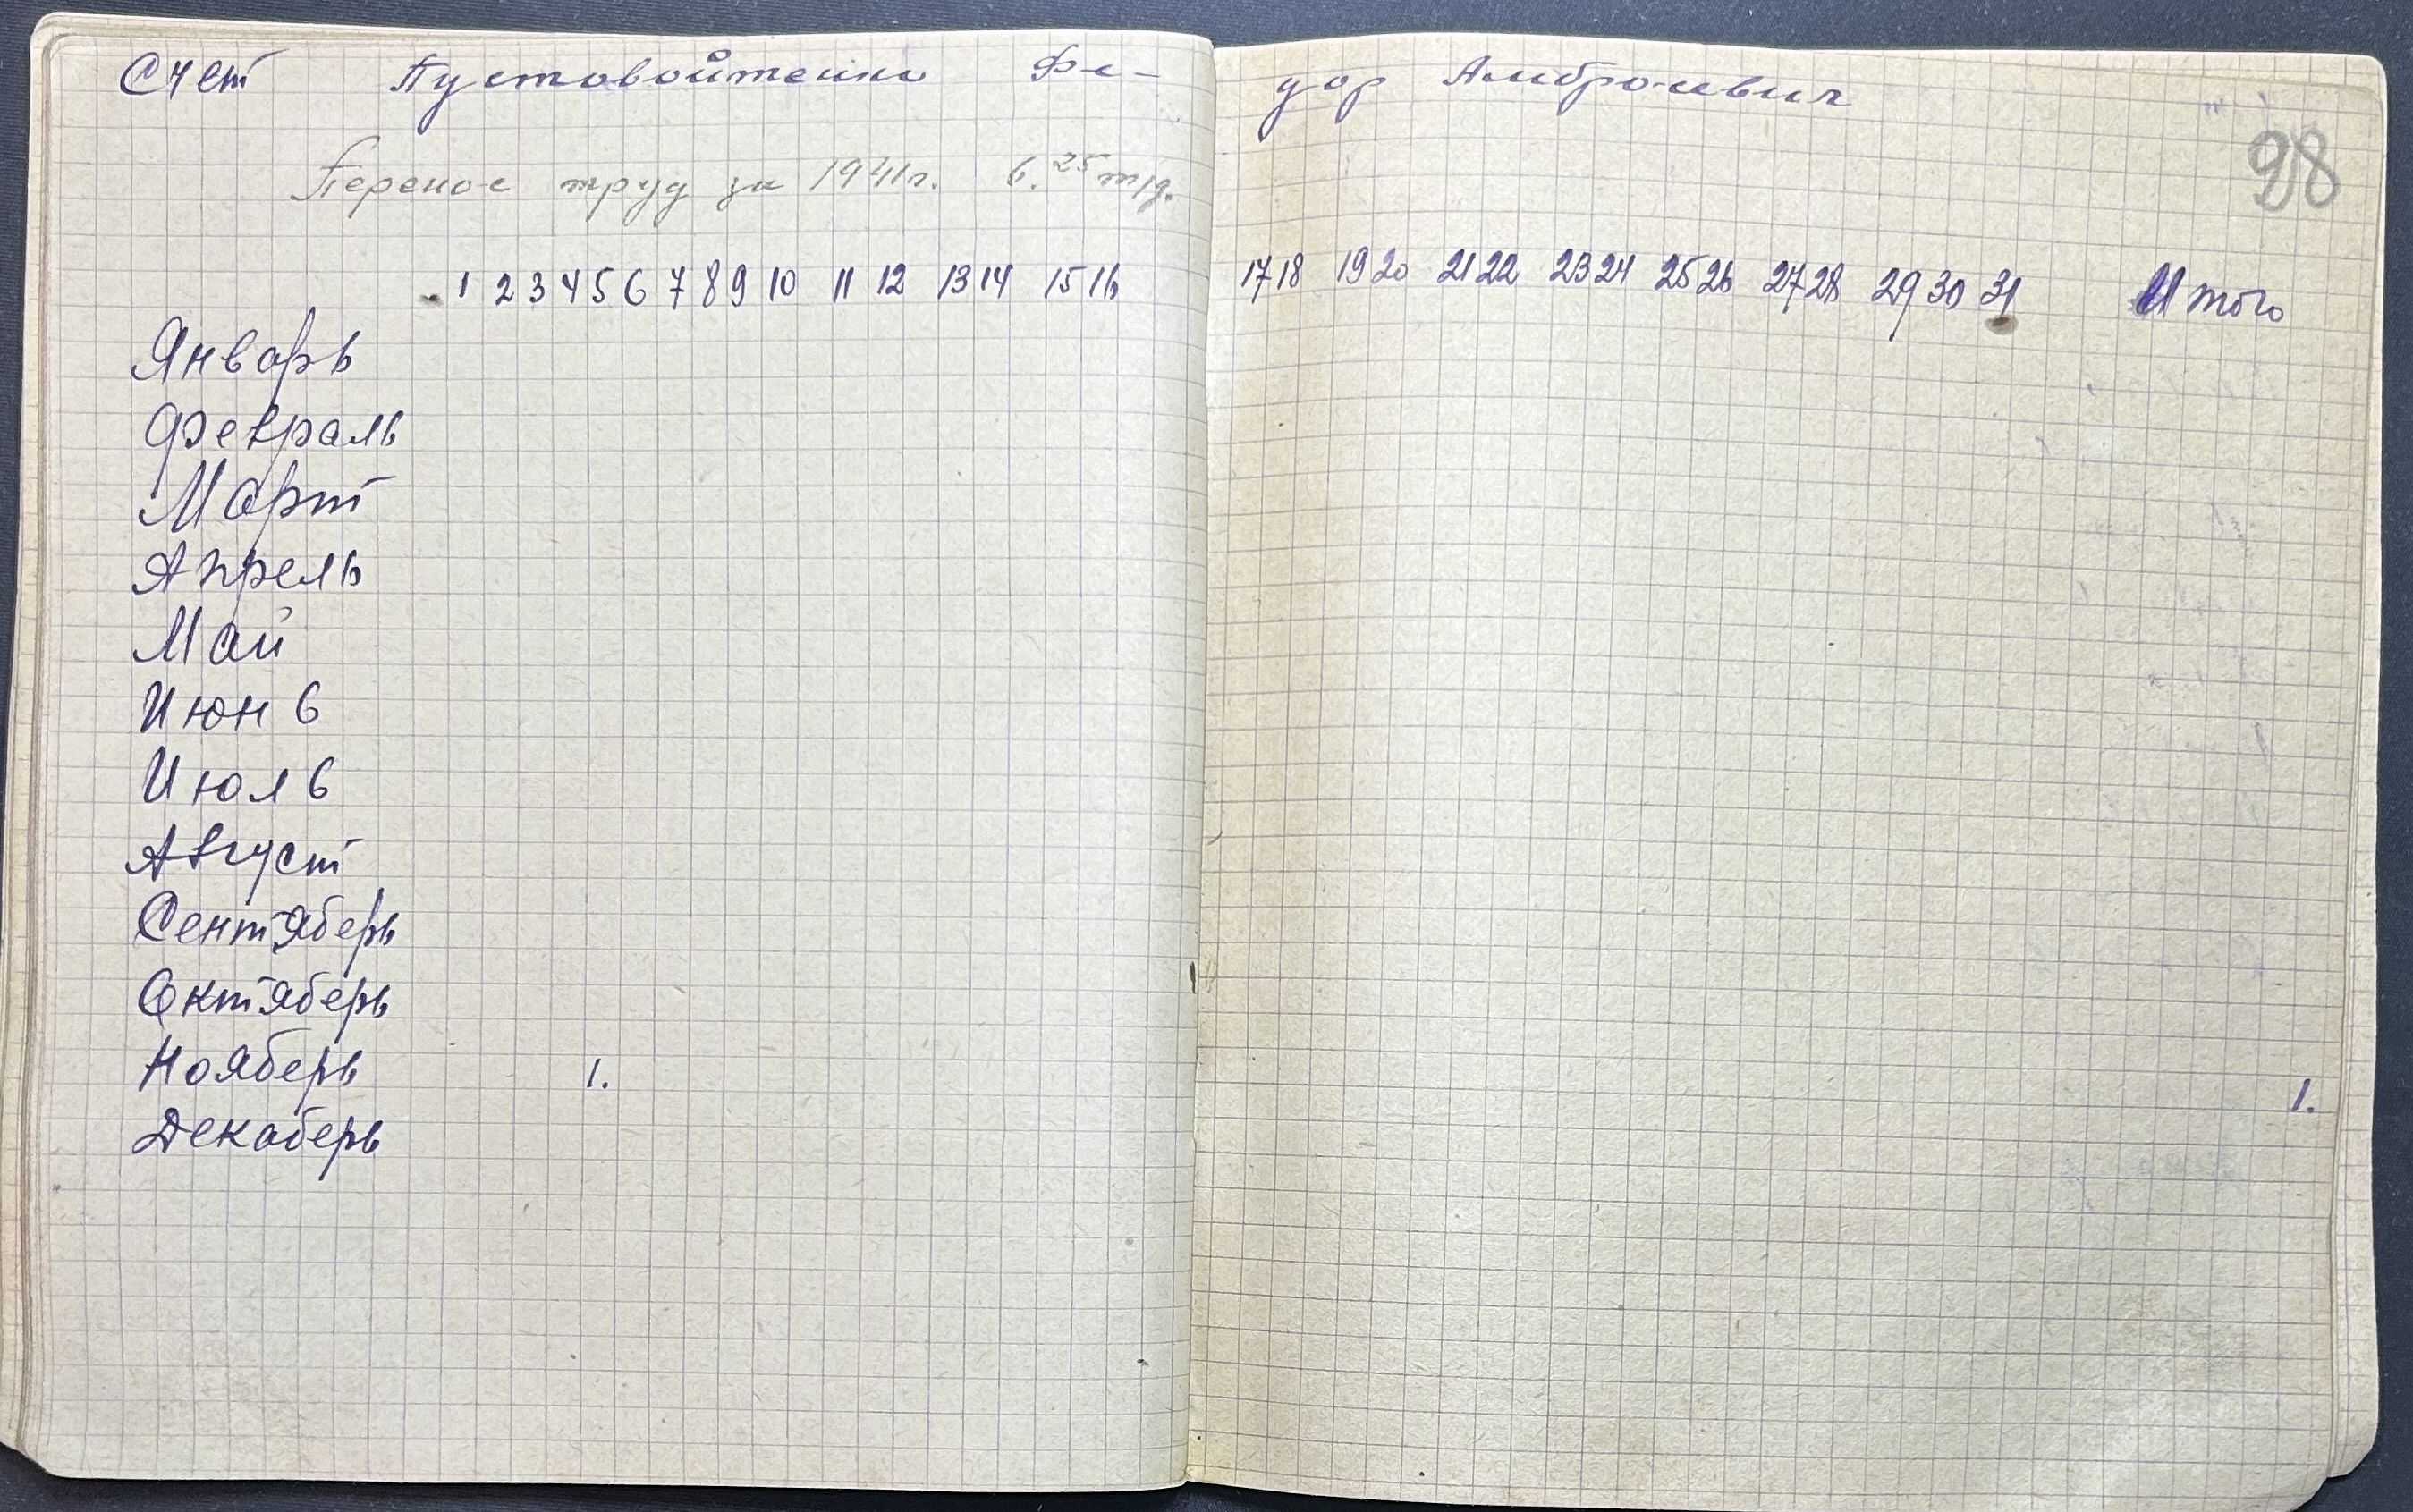 Счет Пустовойтенко Фе-
дор Амбросевич
Перенос труд за 1941г. 6.25 т/д.
98
1 2 3 4 5 6 7 8 9 10 11 12 13 14 15 16 17 18 19 20 21 22 23 24 25 26 27 28 29 30 31 Итого
Январь
Февраль
Март
Апрель
Май
Июнь
Июль
Август
Сентяберь
Октяберь
Нояберь 1. 1.
Декаберь